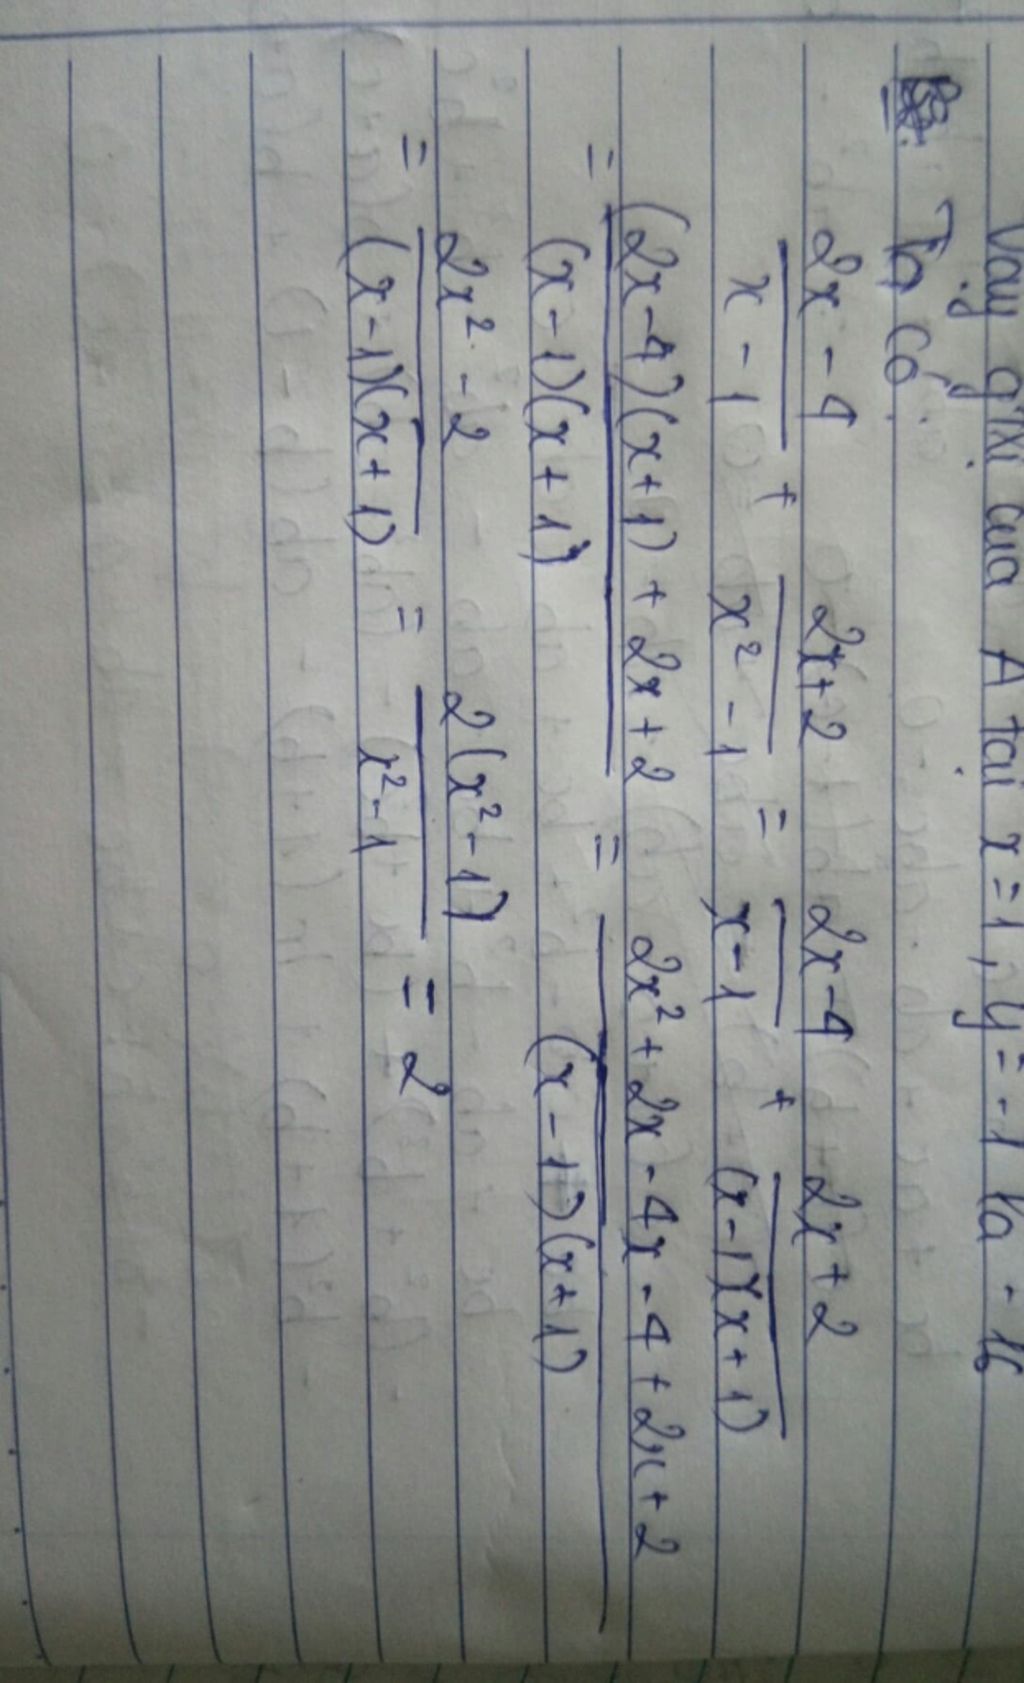 Vậy gtrị của A tại x = 1, y = -1 là - 16
Ta có:
2x - 4 / x - 1 + 2x + 2 / x² - 1 = 2x - 4 / x - 1 + 2x + 2 / (x - 1)(x + 1)
= (2x - 4)(x + 1) + 2x + 2 / (x - 1)(x + 1) = 2x² + 2x - 4x - 4 + 2x + 2 / (x - 1)(x + 1)
= 2x² - 2 / (x - 1)(x + 1) = 2(x² - 1) / x² - 1 = 2